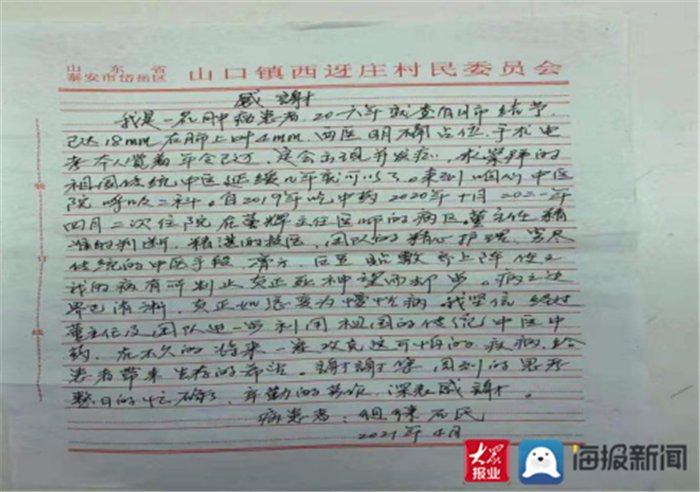 山东省
泰安市岱岳区 山口镇西迓庄村民委员会
感谢
我是一名肺病患者,2016年就查有肺结节
已达18mm 右肺上叶4mm,西医明确占位,手术
考 本人觉着年令已过,定会出现并发症,求
祖国传统中医延缓几年就可以了。来到咱们中医
院呼吸二科。自2019年吃中药 2020年十月 2021年
四月二次住院 在董辉主任医师的病区。董主任精
准的判断,精湛的技医,团队的精心护理,穷尽
传统的中医手段,
我的病有所制止 真正死神望而却步。病
已清淅,真正 变为慢性病 我坚信 经过
董主任及团队进一步利用祖国的传统中医中
药,在不久的将来一定攻克这可怕的疾病,给
患者带来生存的希望。谢谢
整日的忙碌 辛勤的劳作,深表感谢。
病患者:
2021年4月
大众报业
海报新闻